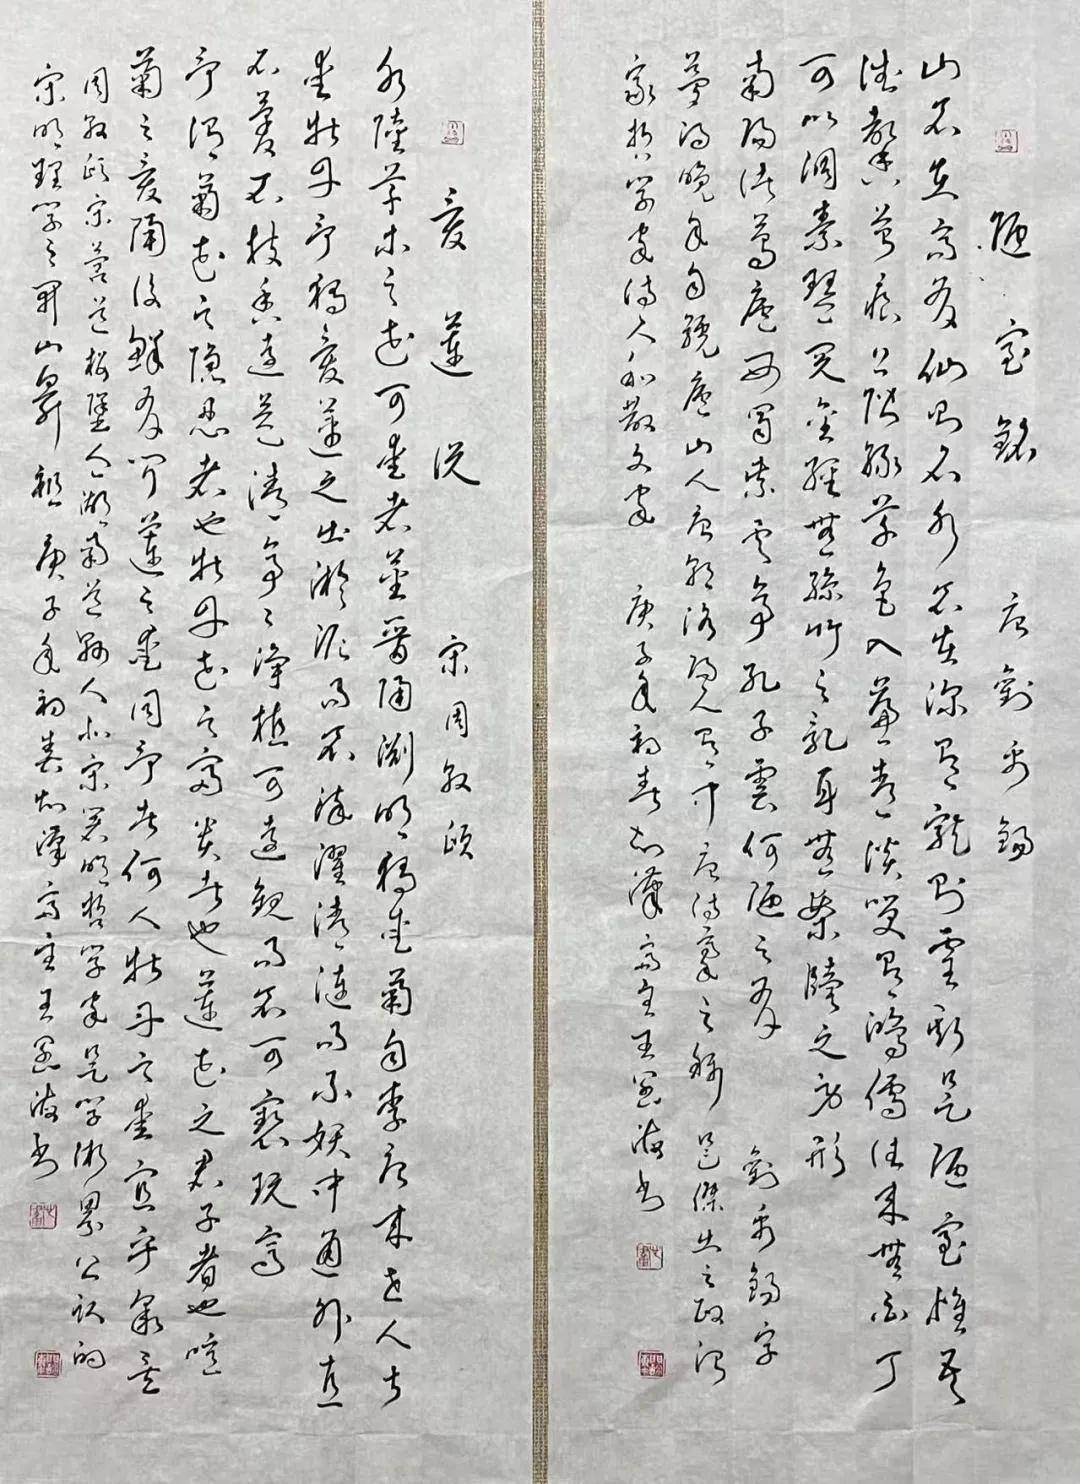 陋室铭 唐刘禹锡
山不在高有仙则名水不在深有龙则灵斯是陋室惟吾
德馨苔痕上阶绿草色入帘青谈笑有鸿儒往来无白丁
可以调素琴阅金经无丝竹之乱耳无案牍之劳形
南阳诸葛庐西蜀子云亭孔子云何陋之有 刘禹锡字
梦得晚年自号庐山人唐朝洛阳人有中唐诗豪之称 是杰出之政治
家哲学家诗人和散文家 庚子年初春 高宝王墨海书
爱莲说 宋周敦颐
水陆草木之花可爱者甚蕃晋陶渊明独爱菊自李唐来世人甚
爱牡丹予独爱莲之出淤泥而不染濯清涟而不妖中通外直
不蔓不枝香远益清亭亭净植可远观而不可亵玩焉
予谓菊花之隐逸者也牡丹花之富贵者也莲花之君子者也噫
菊之爱陶后鲜有闻莲之爱同予者何人牡丹之爱宜乎众矣
周敦颐宋营道楼堡今湖南道县人北宋著名哲学家是学术界公认的
宋明理学之开山鼻祖 庚子年初春 王墨海书